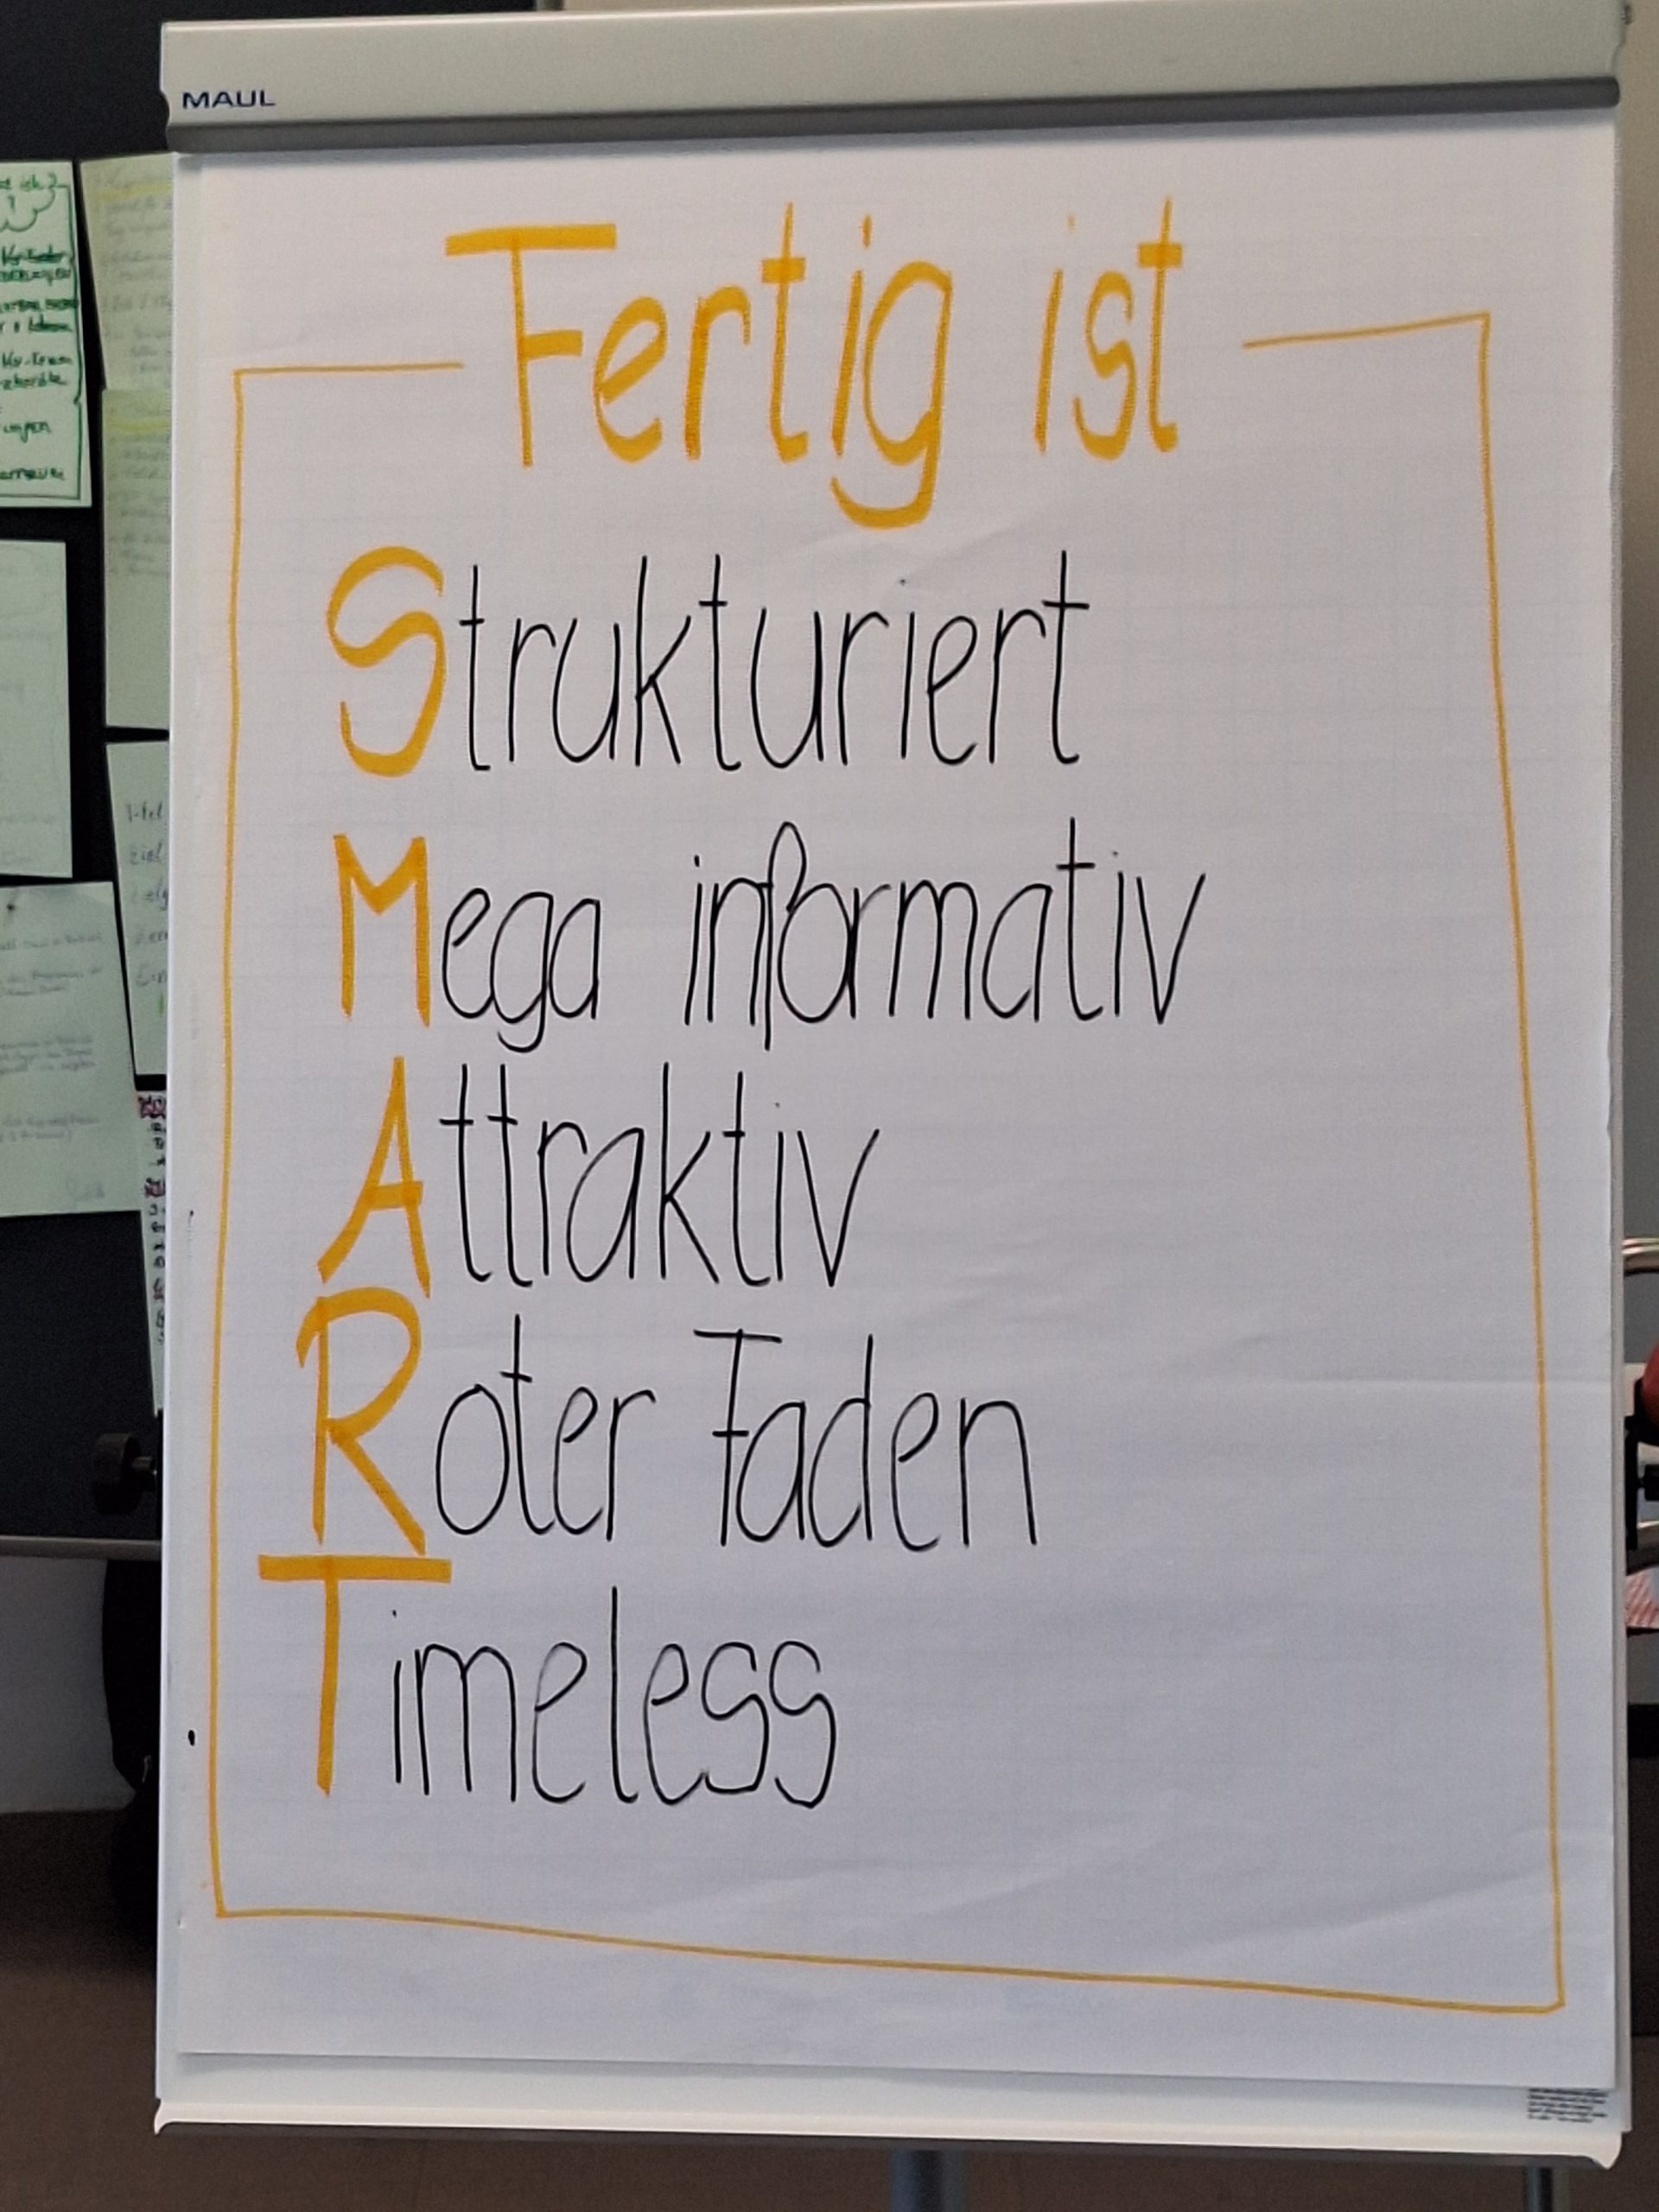 MAUL
Fertig ist
Strukturiert
Mega informativ
Attraktiv
Roter Faden
Timeless